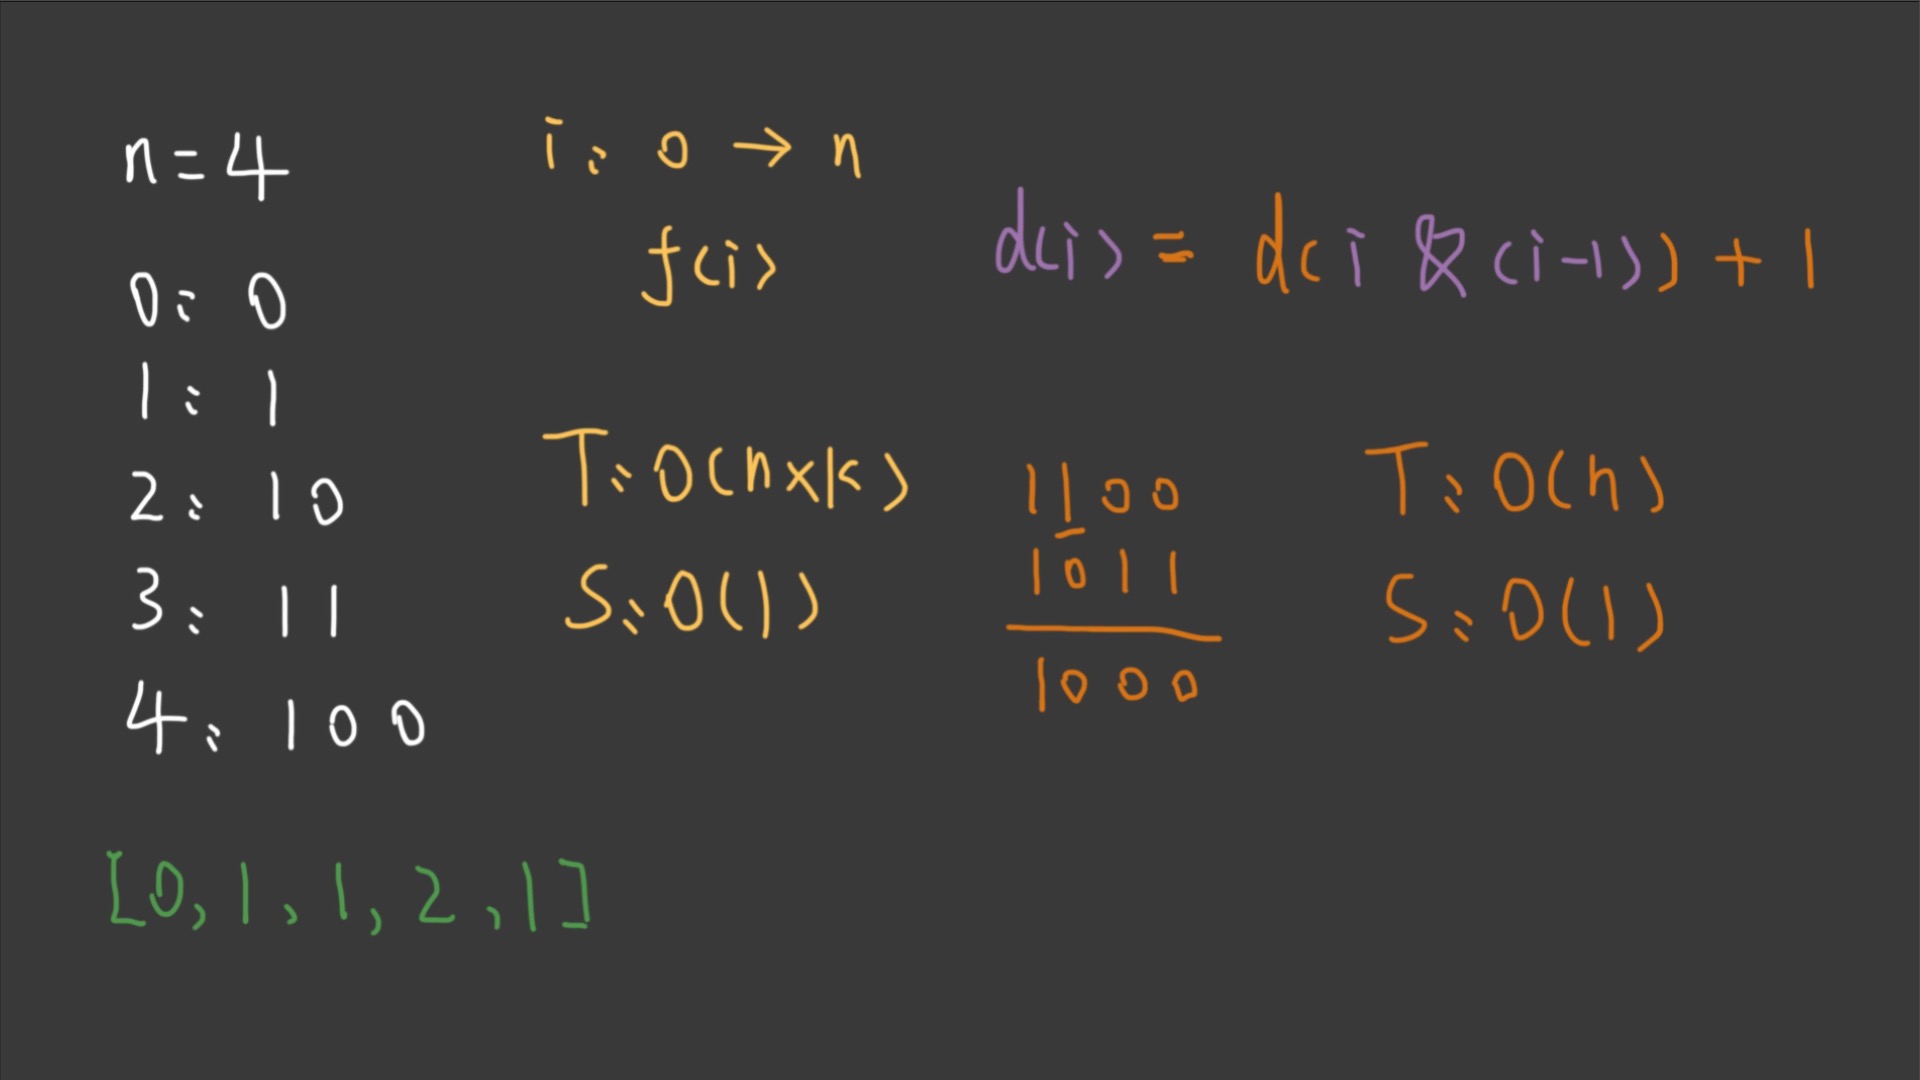 n=4
0: 0
1: 1
2: 10
3: 11
4: 100
[0,1,1,2,1]
i: 0 → n
f(i)
T: O(n×k)
S: O(1)
d(i) = d(i & (i-1)) + 1
1100
1011
1000
T: O(n)
S: O(1)